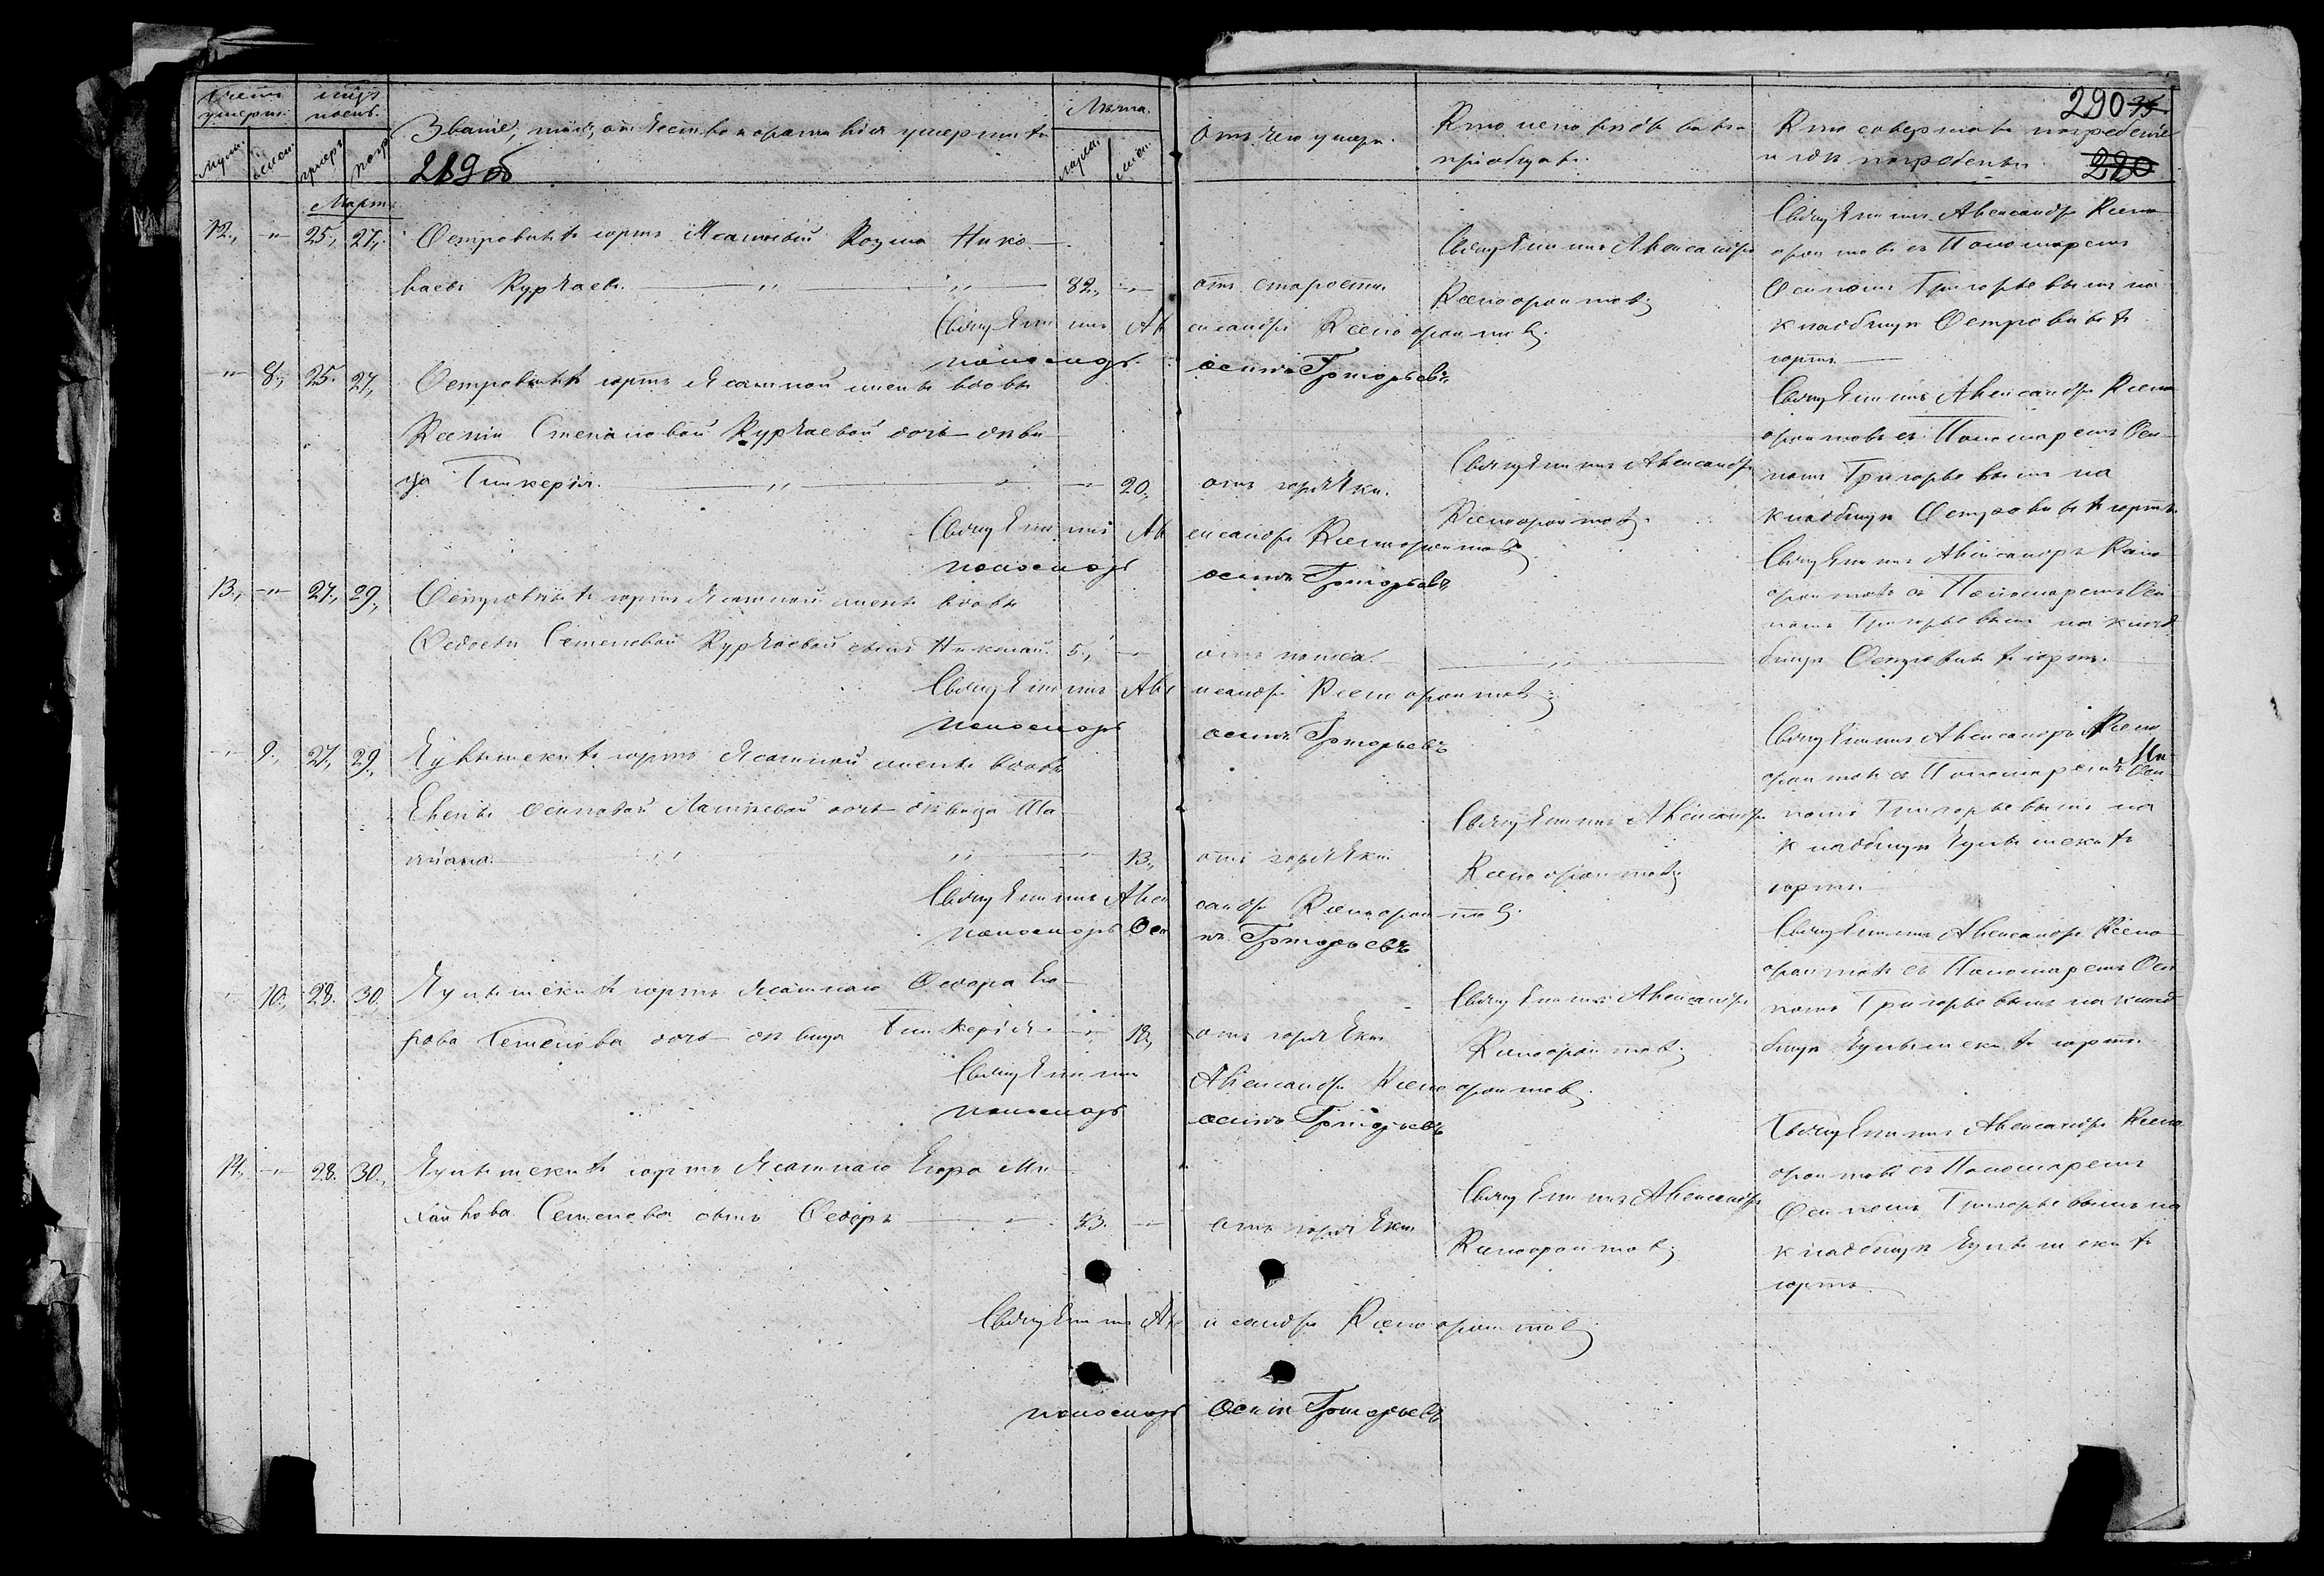 Счетъ умерш.
мѣсяцъ и день.
Званіе, имя, отчество и фамилія умершихъ
Лѣта.
Муж.
женск.
умер.
погр.
муж.
жен.
289 об
Отъ чего умеръ.
Кто исповѣдывалъ и
пріобщалъ.
Кто совершалъ погребеніе
и гдѣ погребены.
290
35
290
Мартъ
12., -"- 25., 27., Островныхъ юртъ Ясашный Козма Нико-
лаевъ Курчаевъ. 82., -"-
отъ старости
Священникъ Александръ
Ксенофонтовъ
Священникъ Александръ Ксено-
фонтовъ съ Пономаремъ
Осипомъ Григорьевымъ на
кладбищѣ Островныхъ
юртъ.
Священникъ Александръ Ксенофонтовъ
пономарь Осипъ Григорьевъ
-"- 8., 25. 27., Островныхъ юртъ Ясашной инокъ вдовы
Ксеніи Степановой Курчаевой дочь дѣви-
ца Гликерія. -"- 20.
отъ горячки.
Священникъ Александръ
Ксенофонтовъ
Священникъ Александръ Ксено-
фонтовъ съ Пономаремъ Оси-
помъ Григорьевымъ на
кладбищѣ Островныхъ юртъ.
Священникъ Александръ Ксенофонтовъ
пономарь Осипъ Григорьевъ
13., -"- 27., 29., Островныхъ юртъ Ясашной вдовы
Федосьи Семеновой Курчаевой сынъ Николай. 5., -"-
отъ поноса.
Священникъ Александръ Ксено-
фонтовъ съ Пономаремъ Оси-
помъ Григорьевымъ на клад-
бищѣ Островныхъ юртъ.
Священникъ Александръ Ксенофонтовъ
пономарь Осипъ Григорьевъ
-"- 9., 27., 29., юртъ Ясашной вдовы
Елены Осиповой дочь дѣвица Та-
тіана. 13.,
отъ горячки
Священникъ Александръ
Ксенофонтовъ
Священникъ Александръ Ксено-
фонтовъ съ Пономаремъ Оси-
помъ Григорьевымъ на
кладбищѣ
юртъ.
Священникъ Александръ Ксенофонтовъ
пономарь Осипъ Григорьевъ
-"- 10., 28. 30., юртъ Ясашнаго Федора Его-
рова Семенова дочь дѣвица Гликерія -"- 18.,
отъ горячки
Священникъ Александръ
Ксенофонтовъ
Священникъ Александръ Ксено-
фонтовъ съ Пономаремъ Оси-
помъ Григорьевымъ на клад-
бищѣ юртъ.
Священникъ Александръ Ксенофонтовъ
пономарь Осипъ Григорьевъ
14., -"- 28. 30., юртъ Ясашнаго Егора Ми-
хайлова Семенова сынъ Федоръ 53. -"-
отъ горячки
Священникъ Александръ
Ксенофонтовъ
Священникъ Александръ Ксено-
фонтовъ съ Пономаремъ
Осипомъ Григорьевымъ на
кладбищѣ
юртъ.
Священникъ Александръ Ксенофонтовъ
пономарь Осипъ Григорьевъ